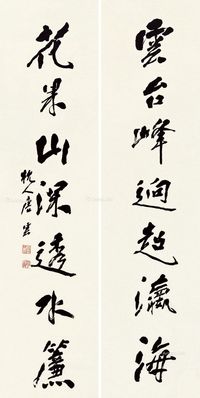 雲台峰迥起瀛海
花果山深透水簾
杭人唐雲